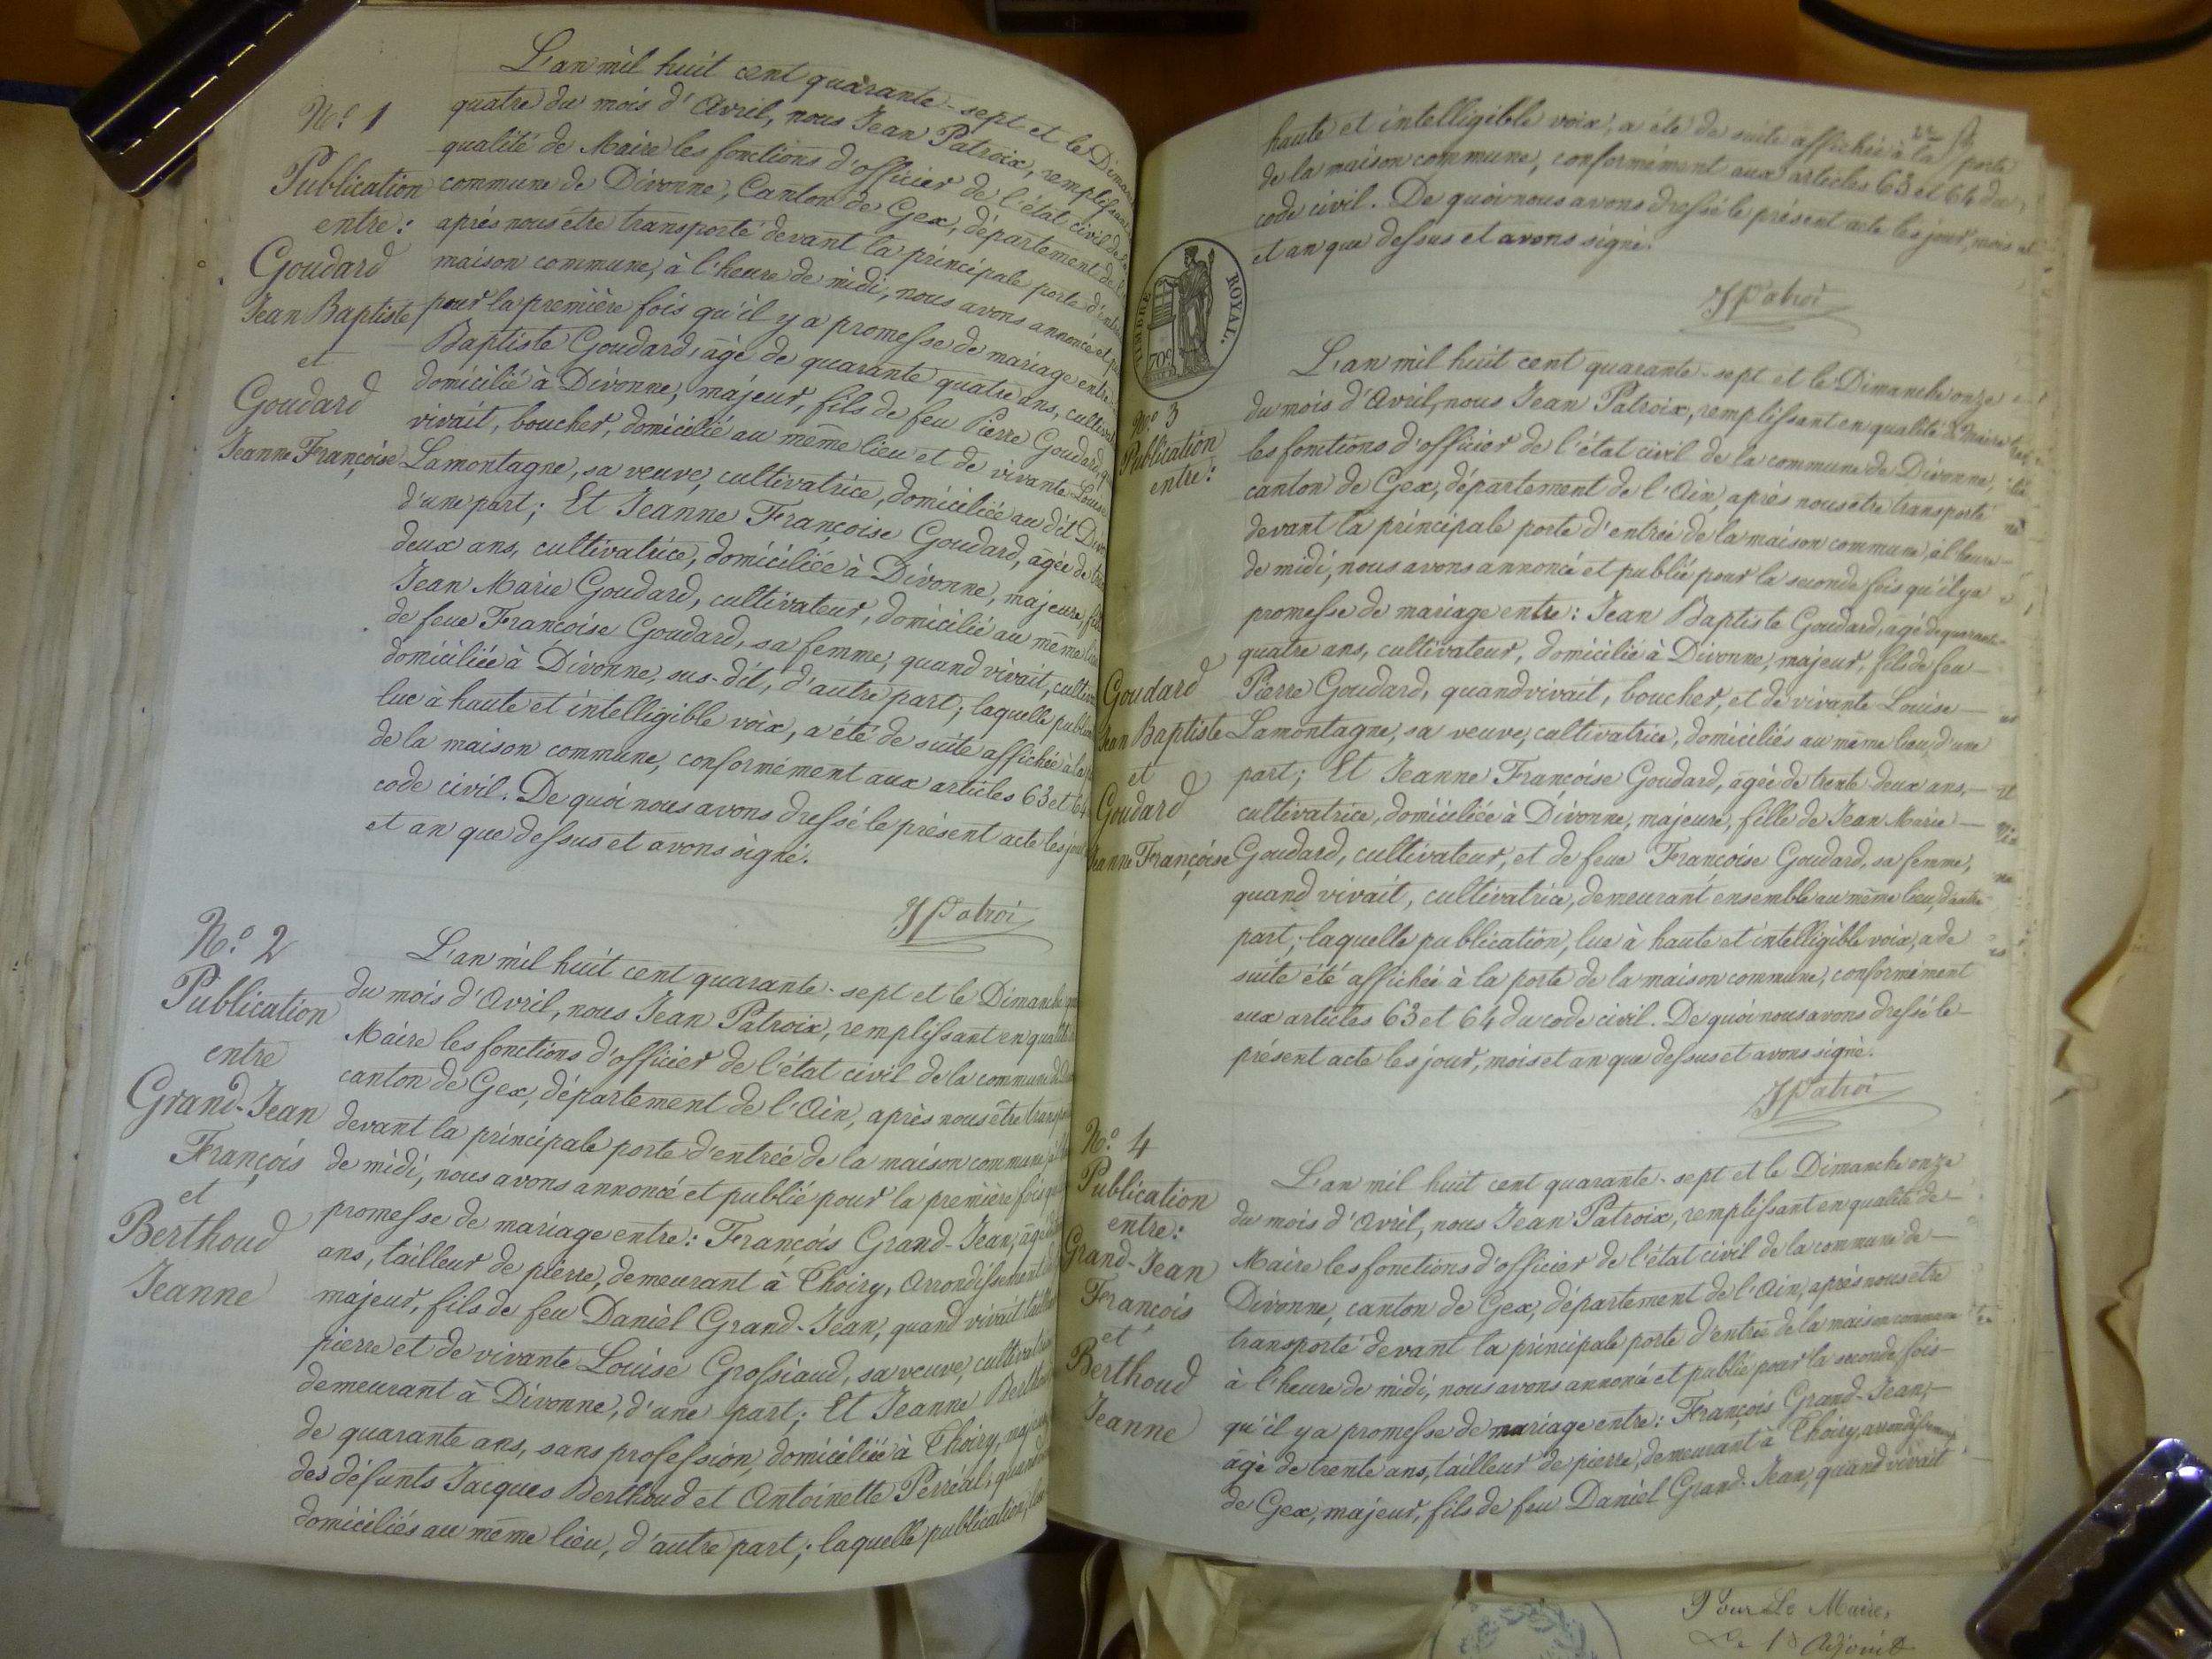 L'an mil huit cent quarante-sept et le Diman
N.º 1
quatre du mois d'Avril, nous Jean Patroix, remplissant
qualité de Maire les fonctions d'officier de l'état civil de la
Publication
commune de Divonne, Canton de Gex, département de
entre:
après nous être transporté devant la principale porte d'ent
Goudard
maison commune, à l'heure de midi, nous avons annoncé et
Jean Baptiste
pour la première fois qu'il y a promesse de mariage entre
et
Baptiste Goudard, âgé de quarante quatre ans, cultivat
Goudard
domicilié à Divonne, majeur, fils de feu Pierre Goudard, q
vivait, boucher, domicilié au même lieu et de vivante Louise
Jeanne Françoise
Lamontagne, sa veuve, cultivatrice, domiciliée au dit Div
d'une part; Et Jeanne Françoise Goudard, agée de tre
deux ans, cultivatrice, domiciliée à Divonne, majeure, fil
Jean Marie Goudard, cultivateur, domicilié au même lieu
de feue Françoise Goudard, sa femme, quand vivait, cultiv
domiciliée à Divonne, sus-dit, d'autre part; laquelle public
lue à haute et intelligible voix, a été de suite affichée à la
de la maison commune, conformément aux articles 63 et 64
code civil. De quoi nous avons dressé le présent acte les jour
et an que dessus et avons signé.
JPatroi
N.º 2
Publication
entre
Grand-Jean
François
et
Berthoud
Jeanne
L'an mil huit cent quarante-sept et le Dimanche qu
du mois d'Avril, nous Jean Patroix, remplissant en qualité
Maire les fonctions d'officier de l'état civil de la commune de
canton de Gex, département de l'Ain, après nous être transpor
devant la principale porte d'entrée de la maison commune, à l'
de midi, nous avons annoncé et publié pour la première fois qu
promesse de mariage entre: François Grand-Jean, âgé
ans, tailleur de pierre, demeurant à Thoiry, Arrondissement
majeur, fils de feu Daniel Grand-Jean, quand vivait taill
pierre et de vivante Louise Grossiaud, sa veuve, cultivatri
demeurant à Divonne, d'une part; Et Jeanne Berthou
de quarante ans, sans profession, domiciliée à Thoiry, majeu
des défunts Jacques Berthoud et Antoinette Perréal, quand
domiciliés au même lieu, d'autre part; laquelle publication, lue
haute et intelligible voix, a été de suite affichée à la porte
de la maison commune, conformément aux articles 63 et 64 du
code civil. De quoi nous avons dressé le présent acte les jour, mois et
et an que dessus et avons signé.
JPatroi
TIMBRE ROYAL.
70c
N.º 3
Publication
entre:
Goudard
Jean Baptiste
et
Goudard
Jeanne Françoise
L'an mil huit cent quarante-sept et le Dimanche onze
du mois d'Avril, nous Jean Patroix, remplissant en qualité de Maire
les fonctions d'officier de l'état civil de la commune de Divonne,
canton de Gex, département de l'Ain, après nous être transporté
devant la principale porte d'entrée de la maison commune, à l'heure
de midi, nous avons annoncé et publié pour la seconde fois qu'il y a
promesse de mariage entre: Jean Baptiste Goudard, agé de quarante-
quatre ans, cultivateur, domicilié à Divonne, majeur, fils de feu
Pierre Goudard, quand vivait, boucher, et de vivante Louise
Lamontagne, sa veuve, cultivatrice, domiciliés au même lieu, d'une
part; Et Jeanne Françoise Goudard, agée de trente deux ans,
cultivatrice, domiciliée à Divonne, majeure, fille de Jean Marie
Goudard, cultivateur, et de feue Françoise Goudard, sa femme,
quand vivait, cultivatrice, demeurant ensemble au même lieu, d'autre
part; laquelle publication, lue à haute et intelligible voix, a de
suite été affichée à la porte de la maison commune, conformément
aux articles 63 et 64 du code civil. De quoi nous avons dressé le
présent acte les jour, mois et an que dessus et avons signé.
JPatroi
N.º 4
Publication
entre:
Grand-Jean
François
et
Berthoud
Jeanne
L'an mil huit cent quarante-sept et le Dimanche onze
du mois d'Avril, nous Jean Patroix, remplissant en qualité de
Maire les fonctions d'officier de l'état civil de la commune de
Divonne, canton de Gex, département de l'Ain, après nous être
transporté devant la principale porte d'entrée de la maison commune
à l'heure de midi, nous avons annoncé et publié pour la seconde fois
qu'il y a promesse de mariage entre: François Grand-Jean,
âgé de trente ans, tailleur de pierre, demeurant à Thoiry, arrondissement
de Gex, majeur, fils de feu Daniel Grand-Jean, quand vivait
Pour Le Maire,
Le 1er Adjoint